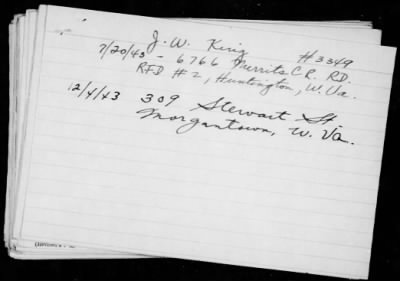 J. W. King #3349
7/20/43 - 6766 Merrits CR. RD.
RFD #2, Huntington, W. Va.
12/4/43 309 Stewart St
Morgantown, W. Va.